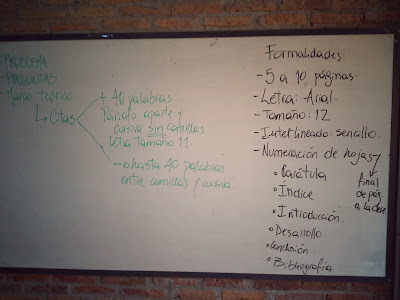 - PROBLEMA
- PREGUNTAS
- Marco teórico
↳ Citas
+ 40 palabras
Párrafo aparte y
cursiva sin comillas
Letra tamaño 11.
- o hasta 40 palabras
entre comillas y cursiva.
Formalidades:
- 5 a 10 páginas
- Letra: Arial
- Tamaño: 12
- Interlineado: sencillo.
- Numeración de hojas
final
de pág.
a la dere
• Carátula
• Índice
• Introducción.
• Desarrollo
• Conclusión
• Bibliografía